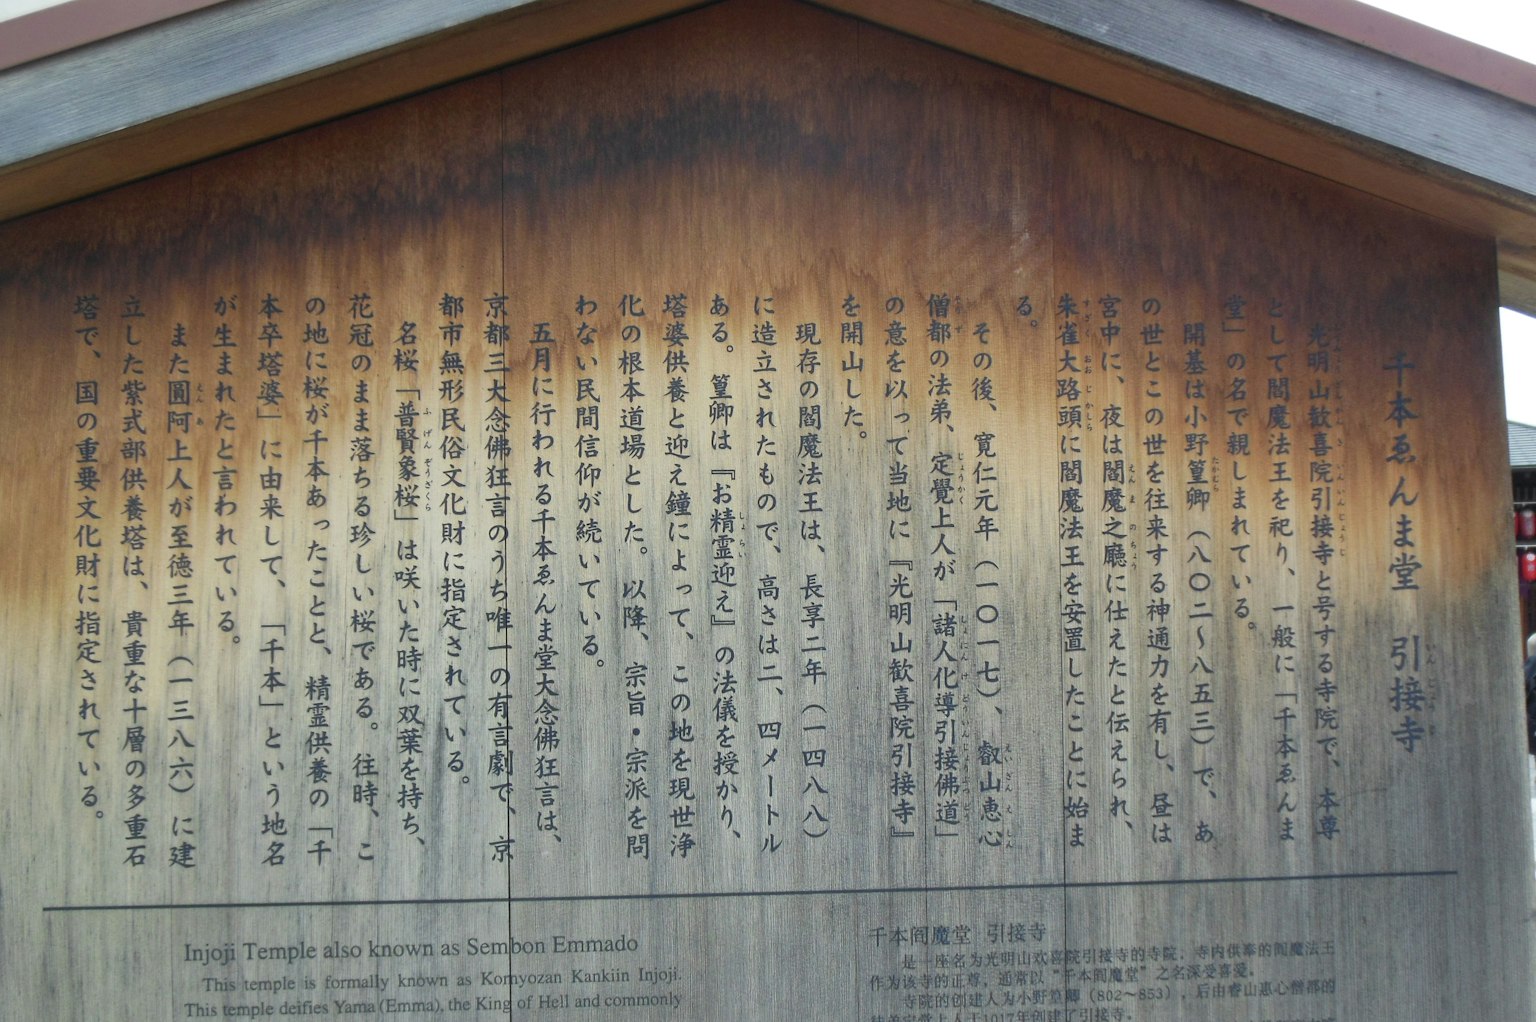 千本ゑんま堂 引接寺
光明山歓喜院引接寺と号する寺院で、本尊
として閻魔法王を祀り、一般に「千本ゑんま
堂」の名で親しまれている。
開基は小野篁卿（八〇二～八五三）で、あ
の世とこの世を往来する神通力を有し、昼は
宮中に、夜は閻魔之廳に仕えたと伝えられ、
朱雀大路頭に閻魔法王を安置したことに始ま
る。
その後、寛仁元年（一〇一七）、叡山恵心
僧都の法弟、定覺上人が「諸人化導引接佛道」
の意を以って当地に『光明山歓喜院引接寺』
を開山した。
現存の閻魔法王は、長享二年（一四八八）
に造立されたもので、高さは二、四メートル
ある。篁卿は『お精霊迎え』の法儀を授かり、
塔婆供養と迎え鐘によって、この地を現世浄
化の根本道場とした。以降、宗旨・宗派を問
わない民間信仰が続いている。
五月に行われる千本ゑんま堂大念佛狂言は、
京都三大念佛狂言のうち唯一の有言劇で、京
都市無形民俗文化財に指定されている。
名桜「普賢象桜」は咲いた時に双葉を持ち、
花冠のまま落ちる珍しい桜である。往時、こ
の地に桜が千本あったことと、精霊供養の「千
本卒塔婆」に由来して、「千本」という地名
が生まれたと言われている。
また圓阿上人が至徳三年（一三八六）に建
立した紫式部供養塔は、貴重な十層の多重石
塔で、国の重要文化財に指定されている。
Injoji Temple also known as Sembon Emmado
This temple is formally known as Komyozan Kankiin Injoji.
This temple deifies Yama (Emma), the King of Hell and commonly
千本阎魔堂 引接寺
是一座名为光明山欢喜院引接寺的寺院，寺内供奉的阎魔法王
作为该寺的正尊，通常以“千本阎魔堂”之名深受喜爱。
寺院的创建人为小野篁卿（802～853），后由睿山惠心僧都的
上人于1017年创建了引接寺。